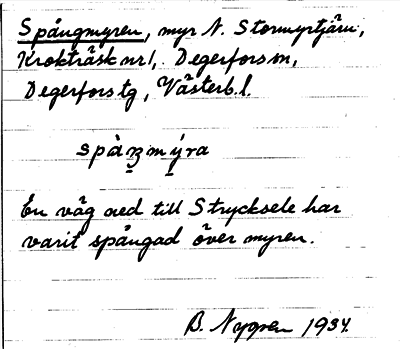 Spångmyren, myr N. Stormyrtjärn,
Krokträsk nr 1, Degerfors sn,
Degerfors tg, Västerb. l.
spàŋmýra
En väg ned till Strycksele har
varit spångad över myren.
B. Nygren 1934.